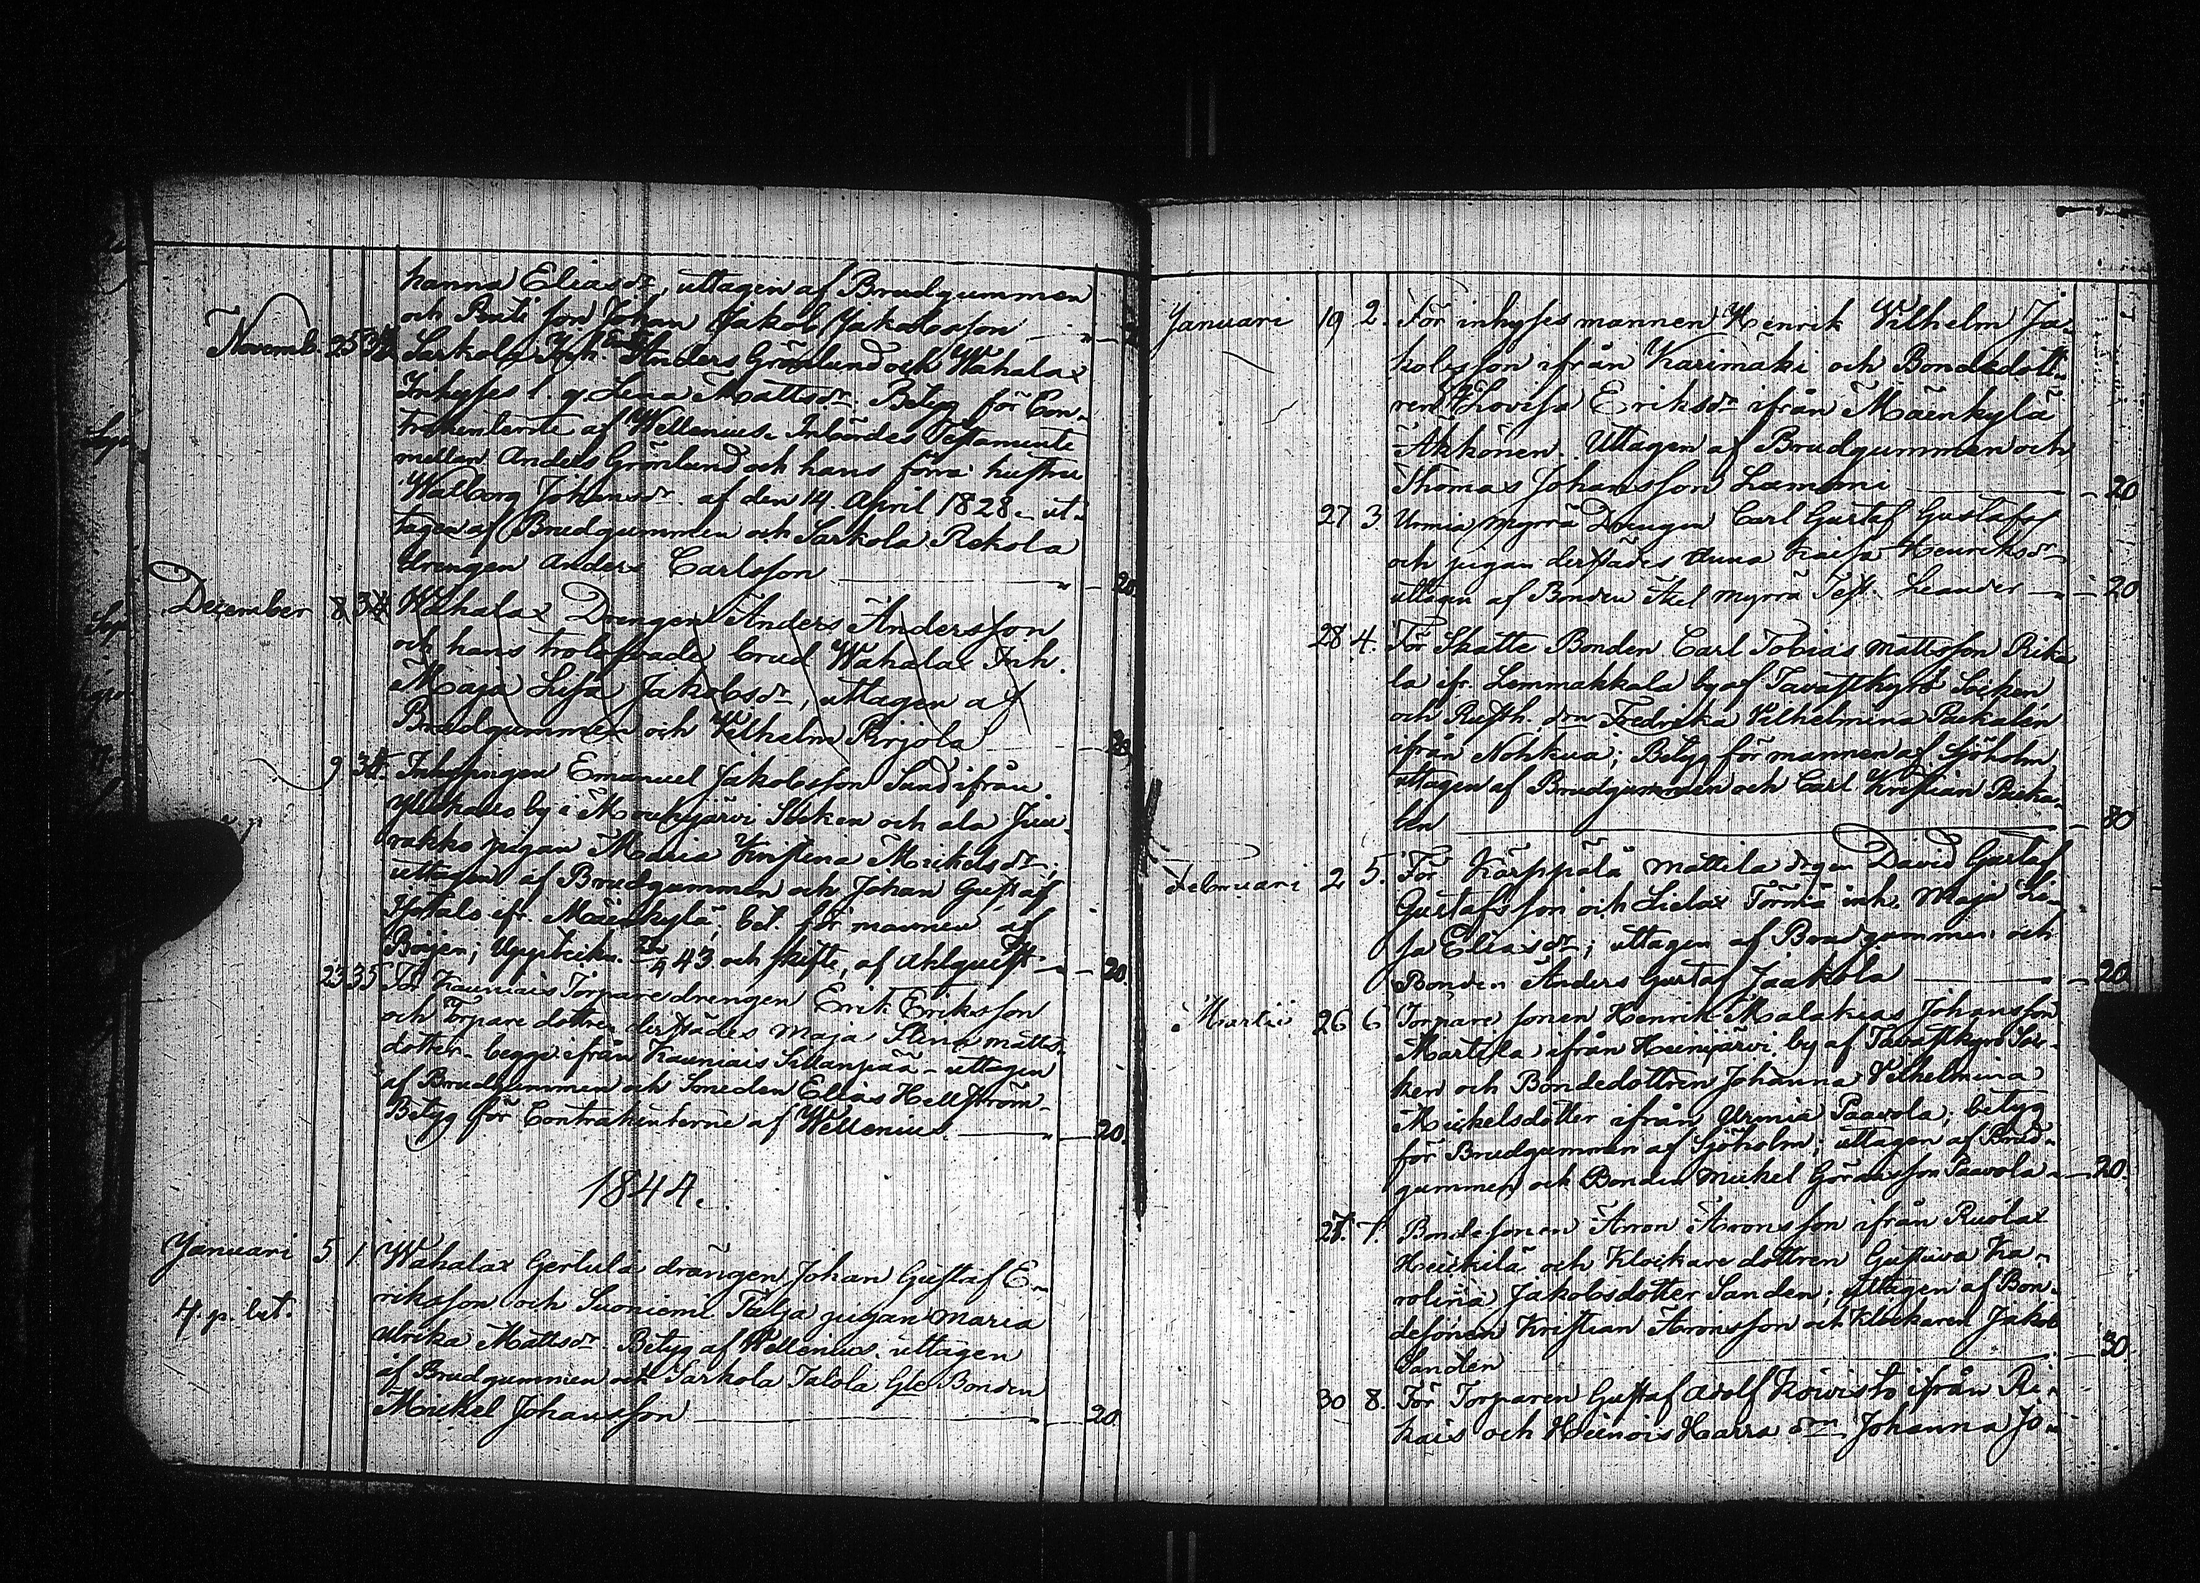 hanna Eliasdr, uttagen af Brudgummen
och Bonde son Johan Jakob Jakobsson
Novemb. 25 Sarkola Inh. Anders Grönlund och Wahalax
Inhyses l. q Lena Mattsdr. Betyg för Con-
trahenterne af Wellenius. Inbördes Testamente
mellan Anders Grönlund och hans förra hustru
Walborg Johansdr. af den 14. April 1828. ut-
tagen af Brudgummen och Sarkola Rekola
drengen Anders Carlsson 20
Dezember 8 Wahalax Drengen Anders Andersson
och hans trolofvade brud Wahalax Inh.
Maja Lisa Jakobsdr, uttagen af
Brudgummen och Vilhelm Pirjola 20
9 34. Inhysingen Emanuel Jakobsson Sund ifrån
by i Mouhijärvi Socken och ala Juu-
rakko pigan Maria Kristina Mickelsdr;
uttagen af Brudgummen och Johan Gustaf
ifr. Mäenkylä; bet. för mannen af
43 och skifte, af Ahlquist 20.
23 35 För Kauniais Torparedrengen Erik Eriksson
och Torpare dottren derstädes Maja Stina Matts-
dotter, begge ifrån Kauniais Sillanpää - uttagen
af Brudgummen och Smeden Elias Hellström.
Betyg för Contrahenterne af Wellenius. 20.
1844.
Januari 5 1 Wahalax Gerlula drängen Johan Gustaf E-
riksson och Suoniemi Tulja pigan Maria
4. p. bet. Ulrika Mattsdr. Betyg af Wellenius. uttagen
af Brudgummen och Sarkola Talola Gle Bonden
Mickel Johansson 20
Januari 19 2. För inhyses mannen Henrik Vilhelm Ja-
kobsson ifrån Karimäki och Bondedott-
ren Lovisa Eriksdr ifrån Mäenkylä
Akkönen. Uttagen af Brudgummen och
Thomas Johansson Lammi 20
27 3 Urmia Myrrä Drengen Carl Gustaf Gustafss
och pigan derstädes Anna Kaisa Henriksdr
uttagen af Bonden Axel Myrrä Test. Leander 20
28 4. För Skatte Bonden Carl Tobias Mattsson Rika
la ifr. Lemmakkala by af Tavastkyrö Socken
och Rusth. drn Fredrika Vilhelmina Paukalén
ifrån Nohkua; Betyg för mannen af Sjöholm
uttagen af Brudgummen och Carl Kristian Pauka-
len 80
Februari 2 5. För Karppälä Mattila drgen David Gustaf
Gustafsson och Lielax Törmä inh. Maja Li-
sa Eliasdr; uttagen af Brudgummen och
Bonden Anders Gustaf Jaakola 20
Martii 26 6 Torpare sonen Henrik Malakias Johansson
Martila ifrån Heinijärvi by af Tavastkyrö Soc-
ken och Bondedottren Johanna Vilhelmina
Mickelsdotter ifrån Urmia Paavola; betyg
för Brudgummen af Sjöholm; uttagen af Brud-
gummen och Bonden Mickel Göransson Paavola 20.
27. 7. Bondesonen Aron Aronsson ifrån Ruolax
Heickilä och Klockare dottren Gustava Ka-
rolina Jakobsdotter Sanden; uttagen af Bon-
desonen Kristian Aronsson och Klockaren Jakob
Sanden 30.
30 8. För Torparen Gustaf Adolf Koivisto ifrån Ri-
kais och Heinois Harra drn Johanna Jo-